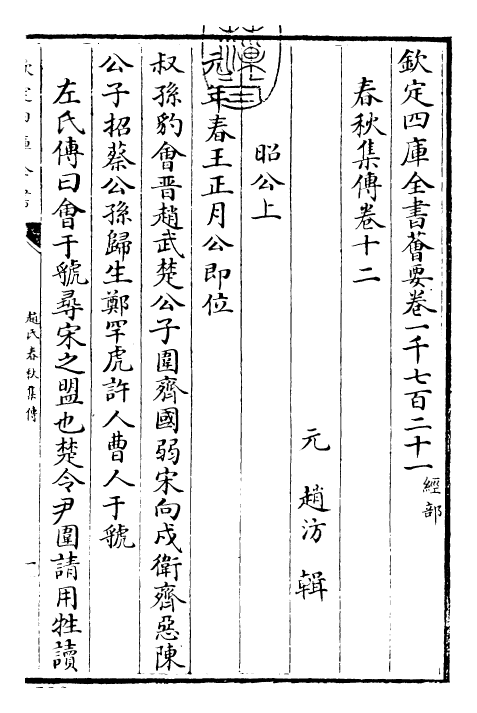 欽定四庫全書薈要卷一千七百二十一 經部
春秋集傳卷十二
元 趙汸 輯
昭公上
元年春王正月公即位
叔孫豹會晉趙武楚公子圍齊國弱宋向戌衛齊惡陳
公子招蔡公孫歸生鄭罕虎許人曹人于虢
左氏傳曰會于虢尋宋之盟也楚令尹圍請用牲讀
趙氏春秋集傳
一